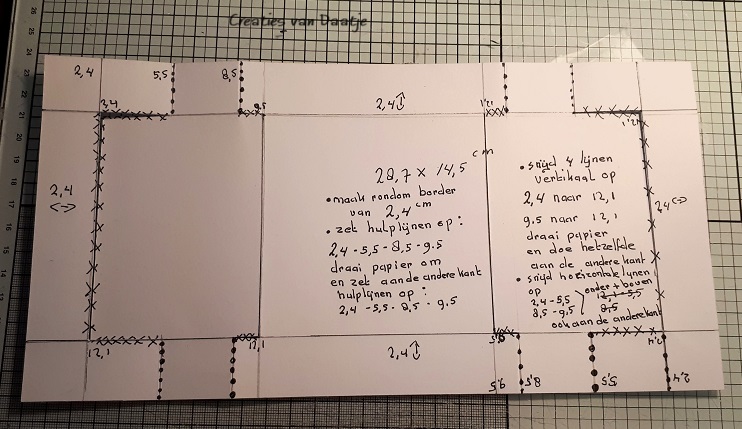 Creaties van Daatje
2,4 5,5 8,5
2,4 9,5 2,4 12,1 12,1
2,4 2,4
28,7 x 14,5 cm
• maak rondom border
van 2,4 cm
• zet hulplijnen op:
2,4 - 5,5 - 8,5 - 9,5
draai papier om
en zet aan de andere kant
hulplijnen op:
2,4 - 5,5 - 8,5 - 9,5
• snijd 4 lijnen
vertikaal op
2,4 naar 12,1
9,5 naar 12,1
draai papier
en doe hetzelfde
aan de andere kant
• snijd horizontale lijnen
op onder + boven
2,4 - 5,5
8,5 - 9,5
ook aan de andere kant
12,1 12,1 2,4 9,5 2,4
9,5 8,5 5,5 2,4